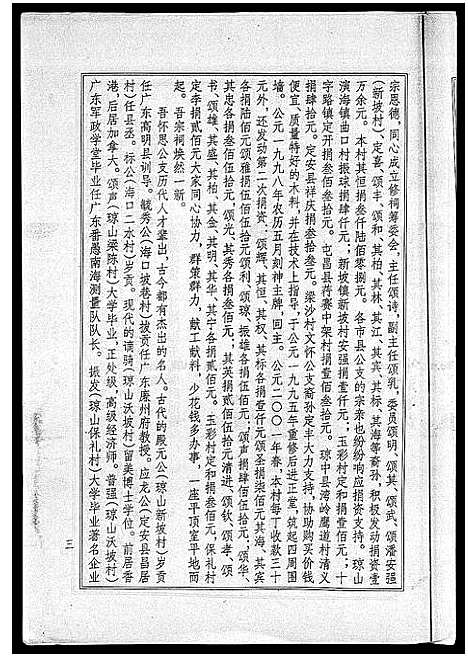 宗恩德，同心成立修祠筹委会，主任颂诗，副主任颂乳，委员颂明、颂其、颂武、颂潘安强
（新坡村）、定喜、颂丰、颂和、其柏、其林、其江、其宾、其标、其海等裔孙，积极发动捐资壹
万余元。本村其恒捌仟陆佰零捌元。各市县公支的宗亲也纷纷响应捐资支持。琼山
滨海镇曲口村振球捐肆仟元；新坡镇新坡村安强捐壹仟元；玉彩村定和捐壹佰元；十
字路镇定开捐叁佰叁拾元。屯昌县荷赛中架村捐壹佰叁拾元。琼中县湾岭鹰道村清义
捐肆拾元。定安县祥庆捐叁拾叁元。梁沙村文怀公支裔孙定丰大力支持，协助购买价钱
便宜、质量特好的木料，并在技术上指导，于公元一九九五年重修后进正堂，筑起四周围
墙。公元一九九八年农历五月刻神主牌，回主。公元二〇〇一年春，本村每丁收款三十
元外，还发动第二次捐资。颂辉、其恒、其权、其标各捐壹仟元颂圣捐柒佰元其海、其宾
各捐陆佰元颂雅捐伍佰伍拾元颂利、颂琼、振雄各捐伍佰元、颂声捐肆佰伍拾元、颂华、
其忠各捐叁佰伍拾元、颂光、其秀各捐叁佰元；其英捐贰佰伍拾元清进、颂钦、颂孝、颂
书、颂雄、其盛、其柏、其金、其明、其华、其宁各捐贰佰元。玉彩村定和捐叁佰元，保礼村
定李捐贰佰元大家同心协力，群策群力，献工献料，少花钱多办事，一座平顶室平地而
起。吾宗祠焕然一新。
吾怀恩公支历代人才辈出，古今都有杰出的名人。古代的殿元公（琼山新坡村）岁贡
任广东高明县训导。毓秀公（海口坡巷村）拔贡任广东廉州府教授。应龙公（定安县昌居
村）任县丞。标公（海口二水村）岁贡。现代的谟骑（琼山沃坡村）留美博士学位。前居香
港，后居加拿大。颂声（琼山梁陈村）大学毕业，正处级，高级经济师。普强（琼山沃坡村）
广东军政学堂毕业任广东番愚南海测量队队长。振发（琼山保礼村）大学毕业著名企业
三